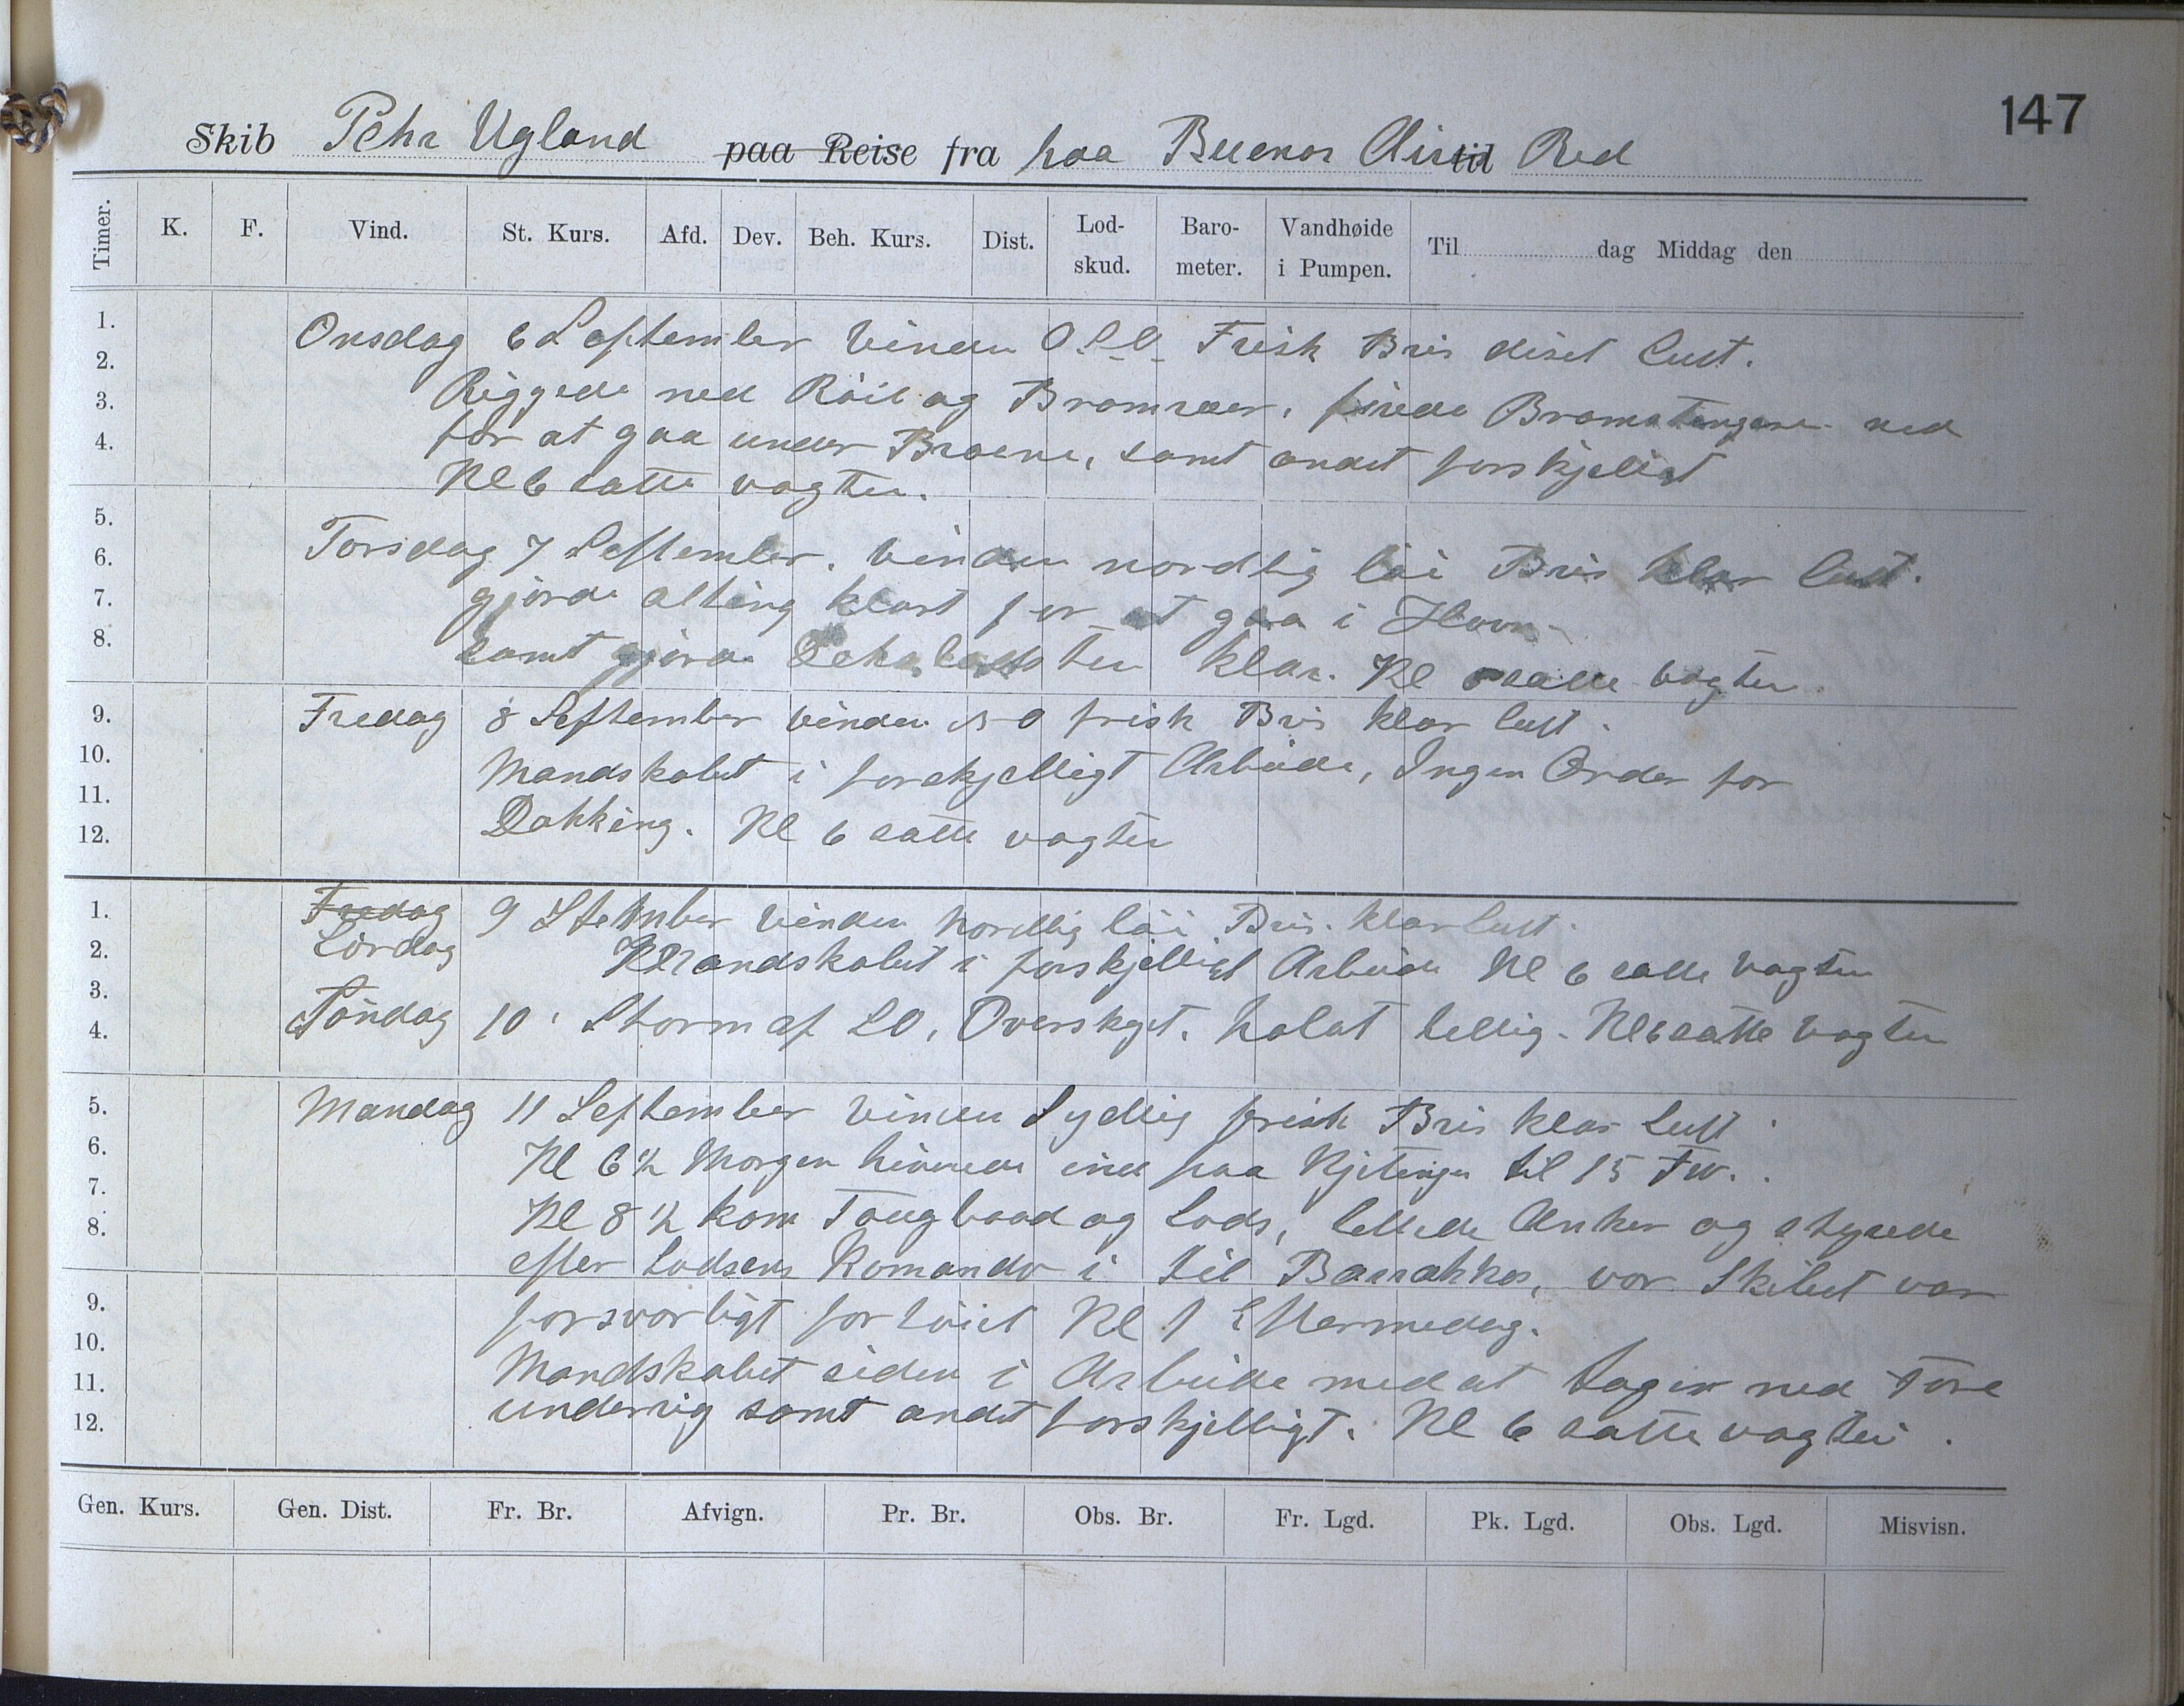 147
Skib Pehr Ugland paa Reise fra paa Buenos Aires til Red
Timer. K. F. Vind. St. Kurs. Afd. Dev. Beh. Kurs. Dist. Lod-skud. Baro-meter. Vandhøide i Pumpen. Til dag Middag den
1.
2.
3.
4.
5.
6.
7.
8.
9.
10.
11.
12.
Onsdag 6 September Vinden Frisk Bris diset Luft.
Riggede ned Röil og Bramraaer, firede Bramstængerne ned
for at gaa under Broene, samt andet forskjelligt
Kl 6 satte vagten.
Torsdag 7 September. Vinden nordlig löi Bris klar luft.
gjorde alting klart for at gaa i Havn
samt gjorde klar. Kl satte vagten.
Fredag 8 September vinden NO frisk Bris klar luft.
Mandskabet i forskjelligt Arbeide, Ingen Order for
Dokking. Kl 6 satte vagten
1.
2.
3.
4.
5.
6.
7.
8.
9.
10.
11.
12.
Fredag 9 Stember Vinden Nordlig löi Bris. klar luft.
Lördag Mandskabet i forskjelligt Arbeide Kl 6 satte Vagten
Söndag 10. Storm af SO. Overskyet. holdt hellig. Kl 6 satte Vagten
Mandag 11 September Vinden Sydlig frisk Bris klar Luft.
Kl 6 ½ Morgen hivede ind paa Kjetingen til 15 Fv.
Kl 8 ½ kom Taugbaad og Lods, lettede Anker og styrede
efter Lodsens Komando i til Barrakkas, vor Skibet var
forsvarligt fortöiet Kl 1 Eftermedag.
Mandskabet siden i Arbeide med at tagen ned Fore
underrig samt andet forskjelligt. Kl 6 satte vagten.
Gen. Kurs. Gen. Dist. Fr. Br. Afvign. Pr. Br. Obs. Br. Fr. Lgd. Pk. Lgd. Obs. Lgd. Misvisn.